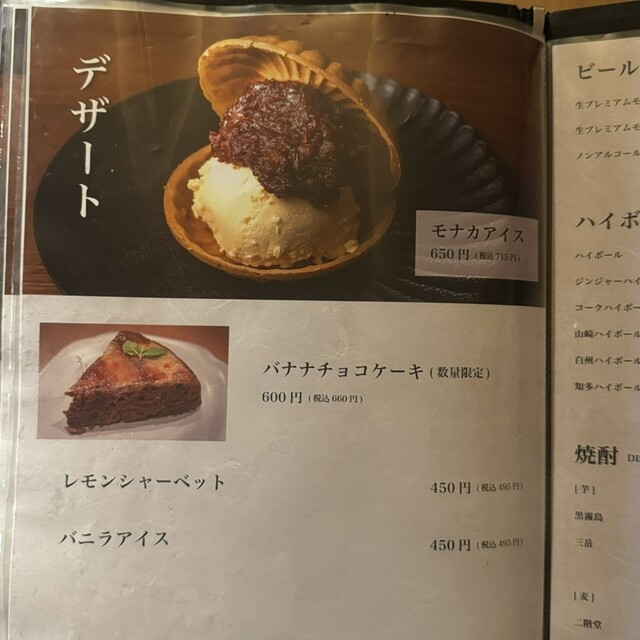 デザート
モナカアイス
650円(税込715円)
バナナチョコケーキ(数量限定)
600円(税込660円)
レモンシャーベット 450円(税込495円)
バニラアイス 450円(税込495円)
ビール
生プレミアムモ
生プレミアムモ
ノンアルコール
ハイボ
ハイボール
ジンジャーハイ
コークハイボー
山崎ハイボール
白州ハイボール
知多ハイボール
焼酎
[芋]
黒霧島
三岳
[麦]
二階堂